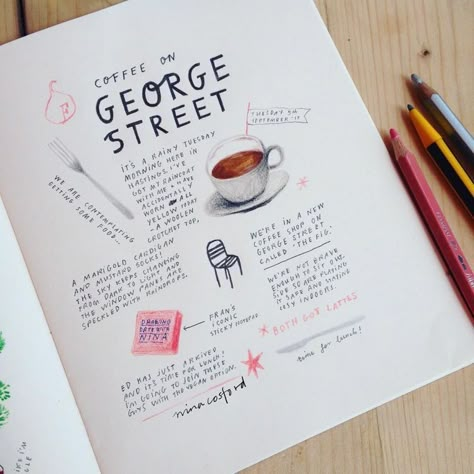 COFFEE ON
GEORGE
STREET
F
TUESDAY 5TH
SEPTEMBER
IT'S A RAINY TUESDAY
MORNING HERE IN
HASTINGS. I'VE
GOT MY RAINCOAT
WITH ME & HAVE
ACCIDENTALLY
WORN ALL
YELLOW TODAY
- A WOOLEN
CROTCHET TOP,
WE ARE CONTEMPLATING
GETTING SOME FOOD...
A MARIGOLD CARDIGAN
AND MUSTARD SOCKS!
THE SKY KEEPS CHANGING
FROM DARK TO LIGHT AND
THE WINDOW PANES ARE
SPECKLED WITH RAINDROPS.
WE'RE IN A NEW
COFFEE SHOP ON
GEORGE STREET
CALLED 'THE FIG'.
WE'RE NOT BRAVE
ENOUGH TO SIT OUT
SIDE SO ARE PLAYING
IT SAFE AND STAYING
COSY INDOORS.
BOTH GOT LATTES
time for lunch!
DRAWING
DATE WITH
NINA
FRAN'S
ICONIC
STICKY NOTES
ED HAS JUST ARRIVED
AND IT'S TIME FOR LUNCH!
I'M GOING TO JOIN THESE
GUYS WITH THE VEGAN OPTION.
nina cosford